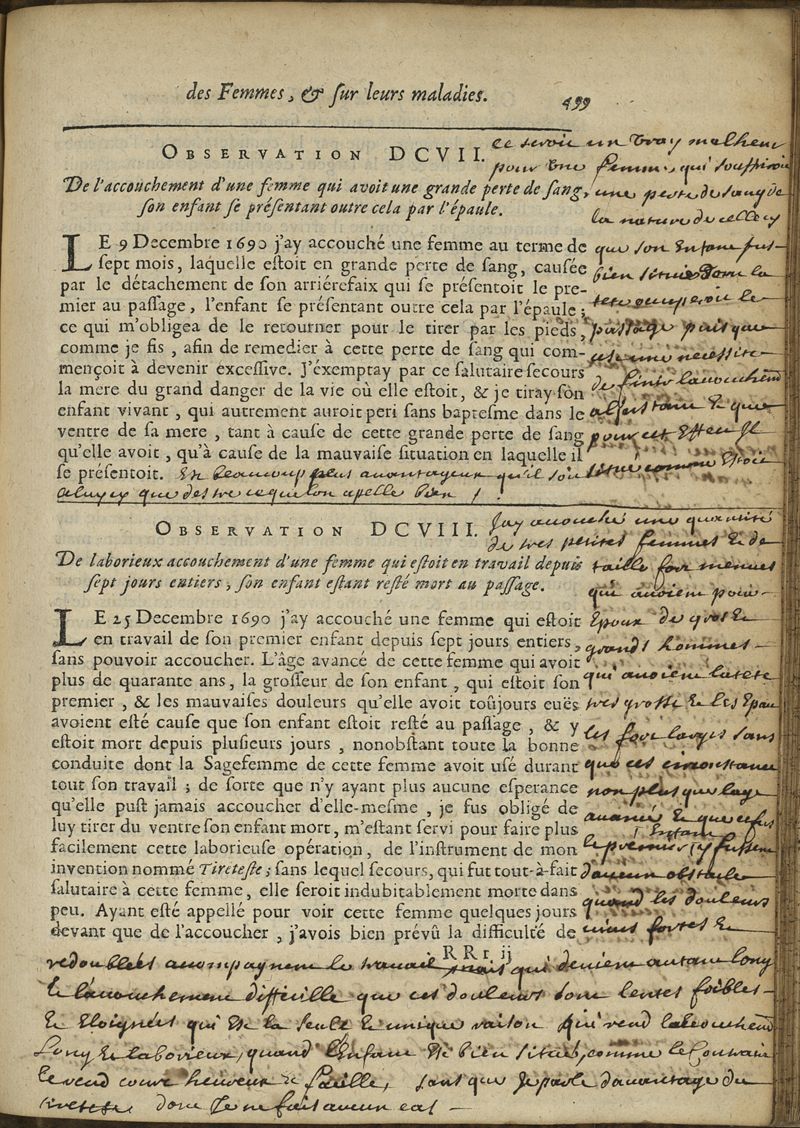 des Femmes, & sur leurs maladies. 499
OBSERVATION DCVII.
De l'accouchement d'une femme qui avoit une grande perte de sang,
son enfant se présentant outre cela par l'épaule.
LE 9 Decembre 1690 j'ay accouché une femme au terme de
sept mois, laquelle estoit en grande perte de sang, causée
par le détachement de son arriérefaix qui se présentoit le pre-
mier au passage, l'enfant se présentant outre cela par l'épaule;
ce qui m'obligea de le retourner pour le tirer par les pieds,
comme je fis, afin de remedier à cette perte de sang qui com-
mençoit à devenir excessive. J'éxemptay par ce salutaire secours
la mere du grand danger de la vie où elle estoit, & je tiray son
enfant vivant, qui autrement auroit peri sans baptesme dans le
ventre de sa mere, tant à cause de cette grande perte de sang
qu'elle avoit, qu'à cause de la mauvaise situation en laquelle il
se présentoit.
ce seroit un vray malheur
pour une femme qui souffriroit
une perte de sang de
la nature de celle cy
que son enfant fust
bien situé dont la
teste occuperoit le
passage puis que
une necessité
de l'accouchement
et que
pour cet effect il
situé comme estoit
est beaucoup plus avantageux qu'il soit
celuy cy que destre ce que lon apelle bien
OBSERVATION DCVIII.
De laborieux accouchement d'une femme qui estoit en travail depuis
sept jours entiers, son enfant estant resté mort au passage.
LE 25 Decembre 1690 j'ay accouché une femme qui estoit
en travail de son premier enfant depuis sept jours entiers,
sans pouvoir accoucher. L'âge avancé de cette femme qui avoit
plus de quarante ans, la grosseur de son enfant, qui estoit son
premier, & les mauvaises douleurs qu'elle avoit toûjours euës
avoient esté cause que son enfant estoit resté au passage, & y
estoit mort depuis plusieurs jours, nonobstant toute la bonne
conduite dont la Sagefemme de cette femme avoit usé durant
tout son travail; de sorte que n'y ayant plus aucune esperance
qu'elle pust jamais accoucher d'elle-mesme, je fus obligé de
luy tirer du ventre son enfant mort, m'estant servi pour faire plus
facilement cette laborieuse opération, de l'instrument de mon
invention nommé Tireteste; sans lequel secours, qui fut tout-à-fait
salutaire à cette femme, elle seroit indubitablement morte dans
peu. Ayant esté appellé pour voir cette femme quelques jours
devant que de l'accoucher, j'avois bien prévû la difficulté de
RRr ij
Jay accouché une quantité
de tres petites femmes et de
taille fort menues
qui avoient pour
Epoux de gros et
grands hommes
qui avoient la teste
tres grosse et les Epau
les fort larges sans
que ces circonstances
non plus que lage
avancé et que ce fust
le premier Enfant y fussent
d'aucun obstacle
quand les douleurs
fortes et
redoublées accompagnent le travail mais qui devient autant long
et l'accouchement difficille que ces douleurs sont lentes foibles
et Eloignées qui est la seule et unique raison qui rend l'accouchement
Long et laborieux, quand l'Enfant est bien situé, comme le Contraire
le rend court heureux et facille, sans que Je parle davantage du
tireteste dont Je ne fait aucun cas